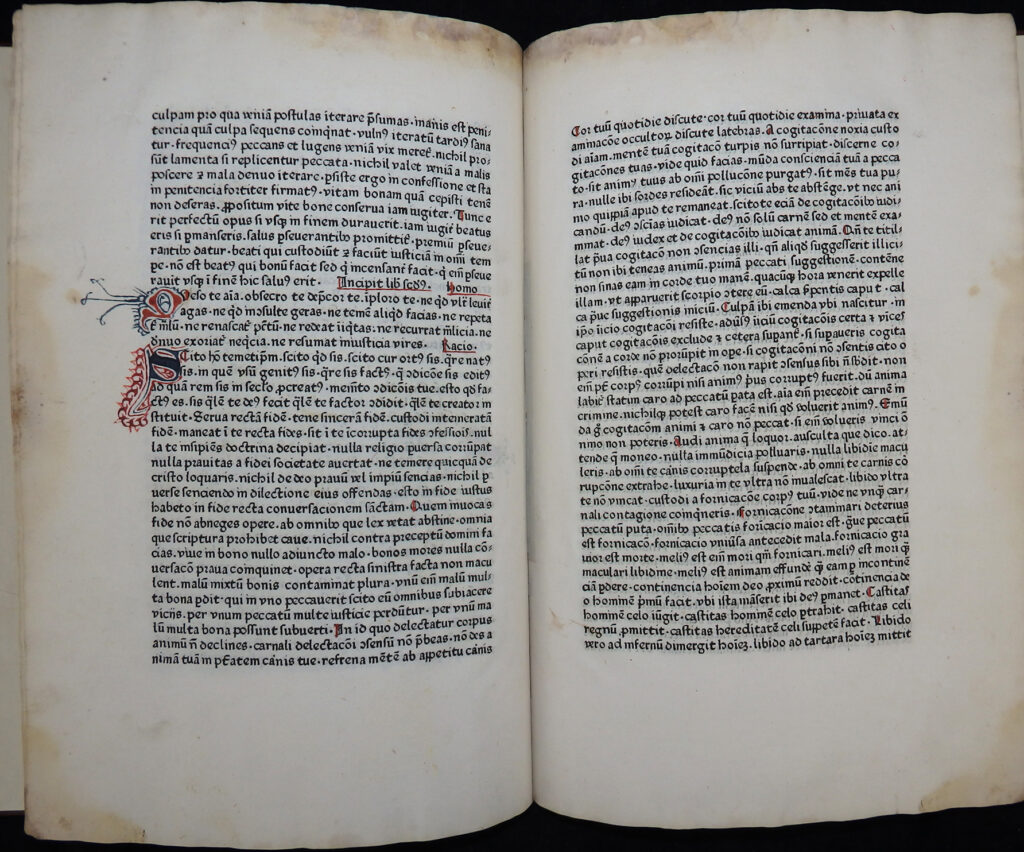 culpam pro qua veniā postulas iterare p̄sumas·inanis est peni
tencia quā culpa sequens coinq̄nat·vulnꝰ iteratū tardiꝰ sana
tur·frequenciꝰ peccans et lugens veniā vix meret̄·nichil pro
sūt lamenta si replicentur peccata·nichil valet veniā a malis
poscere ⁊ mala denuo iterare·p̄siste ergo in confessione et sta
in penitencia fortiter firmatꝰ·vitam bonam quā cepisti tene
non deseras·ꝓpositum vite bone conserua iam iugiter·Tunc e
rit perfectū opus si vsqꝫ in finem durauerit·iam iugit̄ beatus
eris si ꝑmanseris·salus ꝑseuerantibꝰ promittit̄·premiū ꝑseue
rantibꝰ datur·beati qui custodiūt ⁊ faciūt iusticiā in om̄i tem
pe·nō est beatꝰ qui bonū facit sed q̄ incensant̄ facit·q̄ em̄ ꝑseue
rauit vsqꝫ ī finē hic saluꝰ erit· Incipit lib̄ scd̄ꝰ. Homo
Qeso te aīa·obsecro te dep̄cor te·īploro te·ne qd̄ vlt̄ leuit̄
agas·ne qd̄ incōsulte geras·ne temē aliqd̄ facias·ne repeta
t̄ mlū·ne renascat̄ pctū·ne redeat iīqtas·ne recurrat mlicia·ne
dn̄uo exoriat̄ neqcia·ne resumat iniusticia vires· Racio·
Scito hō temetip̄m·scito qd̄ sis·scito cur ortꝰ sis·qre natꝰ
sis·in quē vsū genitꝰ sis·qre sis factꝰ·q̄ ↄdicōe sis editꝰ
ad quā rem sis in seclo ꝓcreatꝰ·memēto ↄdicōis tue·esto qd̄ fa
ctꝰ es·sis ql̄e te deꝰ fecit ql̄e te factor ↄdidit·ql̄e te creator in
stituit·Serua rectā fidē·tene sincerā fidē·custodi intemeratā
fidē·maneat ī te recta fides·sit ī te īcorrupta fides ↄfessiois·nul
la te insipiēs doctrina decipiat·nulla religio puersa corrūpat
nulla prauitas a fidei societate auertat·ne temere quicquā de
cristo loquaris·nichil de deo prauū vel impiū sencias·nichil ꝑ
uerse senciendo in dilectione eius offendas·esto in fide iustus
habeto in fide recta conuersacionem sāctam·Quem inuocas
fide nō abneges opere·ab omnibꝰ que lex vetat abstine·omnia
que scriptura prohibet caue·nichil contra preceptū domini fa
cias·viue in bono nullo adiuncto malo·bonos mores nulla cō-
uersacō praua coinquinet·opera recta sinistra facta non macu
lent·malū mixtū bonis contaminat plura·vnū em̄ malū mul-
ta bona pdit·qui in vno peccauerit scito eū omnibus subiacere
vicijs·per vnum peccatū multe iusticie perdūtur·per vnū ma
lū multa bona possunt subuerti·In id quo delectatur corpus
animū n̄ declines·carnali delectacōi ↄsensū nō p̄beas·nō des a
nimā tuā in p̄tatem carnis tue·refrena mētē ab appetitu carnis
Cor tuū quotidie discute·cor tuū quotidie examina·priuata ex
aminacōe occultoꝝ discute latebras·A cogitacōne noxia custo
di aīam·mentē tuā cogitacō turpis nō surripiat·discerne co-
gitacōnes tuas·vide quid facias·mūda conscienciā tuā a pecca
to·sit animꝰ tuus ab om̄i pollucōne purgatꝰ·sit mēs tua pu-
ra·nulle ibi sordes resideāt·sic viciū abs te abstēge·vt nec ani
mo quippiā apud te remaneat·scito te eciā de cogitacōibꝰ iudi-
candū·deꝰ ↄscias iudicat·deꝰ nō solū carnē sed et mentē exa-
minat·deꝰ iudex et de cogitacōibꝰ iudicat animā·Qn̄ te titil-
lat p̄ua cogitacō non ↄsencias illi·qn̄ aliqd̄ suggesserit illici-
tū non ibi teneas animū·primā peccati suggestionē·contēne
non sinas eam in corde tuo manē·quacūqꝫ hora venerit expelle
illam·vt apparuerit scorpio ↄtere eū·calca ꝑpentis caput·cal
ca p̄ue suggestionis iniciū·Culpā ibi emenda vbi nascitur·in
ip̄o īicio cogitacōi resiste·aduersꝰ īiciū cogitacōis certa ⁊ vices
caput cogitacōis exclude ⁊ cetera supant̄·si supaueris cogita
cōnē a corde nō prorūpit in ope·si cogitacōni nō ↄsentis cito o
peri resistis·quē delectacō non rapit ↄsensus sibi n̄ sb̄dit·non
em̄ pt̄ corpꝰ corrūpi nisi animꝰ p̄us corruptꝰ fuerit·dū anima
labit̄ statim caro ad peccatū pata est·aīa em̄ precedit carnē in
crimine·nichilqꝫ potest caro facē nisi qd̄ voluerit animꝰ·Emū
da ḡ cogitacōm animi ⁊ caro nō peccat·si em̄ volueris vinci ō
nino non poteris·Audi anima q̄ loquor·ausculta que dico·at-
tende q̄ moneo·nulla immūdicia polluaris·nulla libidie macu
leris·ab om̄i te carnis corruptela suspende·ab omni te carnis co
rrupcōne extrahe·luxuria in te vltra nō mualescat·libido vltra
te nō vincat·custodi a fornicacōe corpꝰ tuū·vide ne vnqꝫ car-
nali contagione coinq̄neris·Fornicacōne ↄtaminari deterius
peccatū puta·om̄ibꝰ peccatis fornicacio maior est·ḡue peccatū
est fornicacō·fornicacio vniūsa antecedit mala·fornicacio gra
uior est morte·meliꝰ est em̄ mori qm̄ fornicari·meliꝰ est mori qꝫ
maculari libidine·meliꝰ est animam effundē qꝫ eam p incontinē
ciā ꝑdere·continencia hoīem deo ꝓximū reddit·cōtinencia de
o hominē p̄mū facit·vbi ista māserit ibi deꝰ ꝑmanet·Castitas
hominē celo iūgit·castitas hominē celo ꝑtrahit·castitas celi
regnū ꝓmittit·castitas hereditatē celi suppetē facit·Libido
vero ad infernū dimergit hoīeꝫ·libido ad tartara hoīeꝫ mittit